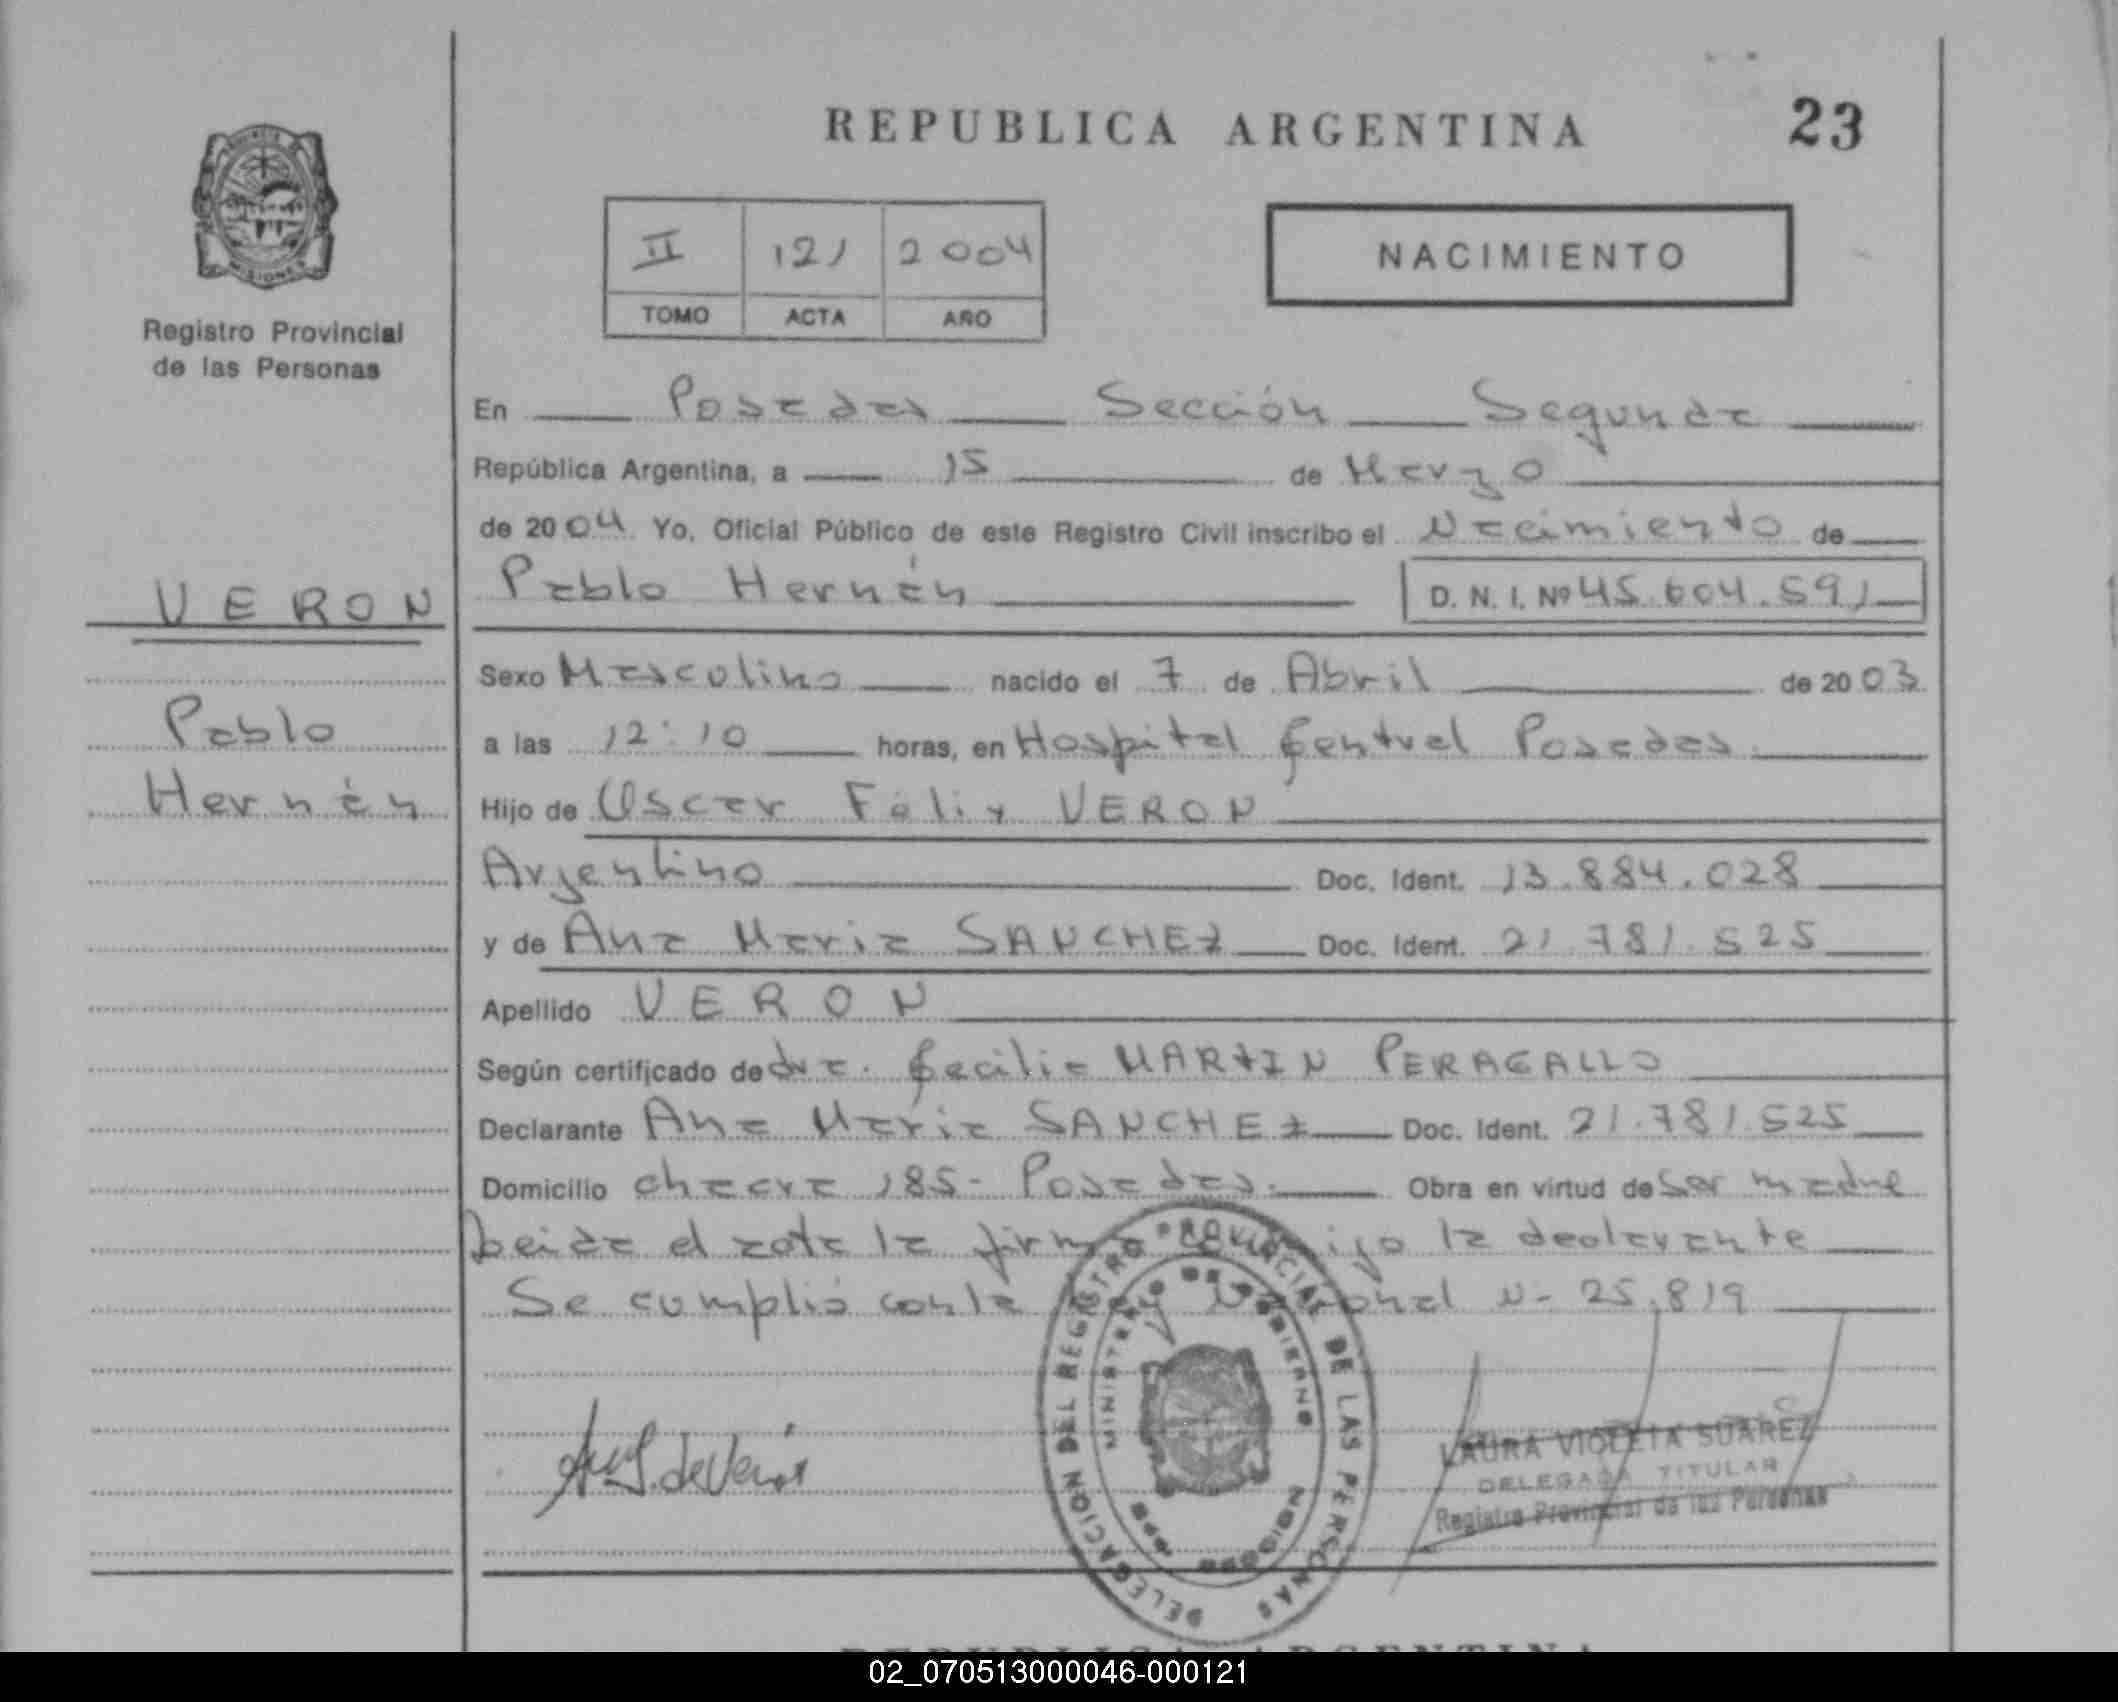 REPUBLICA ARGENTINA 23
MISIONES
Registro Provincial
de las Personas
II 121 2004
TOMO ACTA AÑO
NACIMIENTO
En Posadas Sección Segunda
República Argentina, a 15 de Marzo
de 2004 Yo, Oficial Público de este Registro Civil inscribo el Nacimiento de
VERON
Pablo Hernán D. N. I. Nº 45.604.591
Sexo Masculino nacido el 7 de Abril de 2003
Pablo
a las 12:10 horas, en Hospital Central Posadas
Hernán
Hijo de Oscar Félix VERON
Argentino Doc. Ident. 13.884.028
y de Ana Maria SANCHEZ Doc. Ident. 21.781.525
Apellido VERON
Según certificado de dra. Cecilia MARTIN PERAGALLO
Declarante Ana María SANCHEZ Doc. Ident. 21.781.525
Domicilio chacra 185- Posadas. Obra en virtud de Ser madre
Leida el acta la firma conmigo la declarante
Se cumplió con la Ley Nacional N- 25.819
DELEGACION DEL REGISTRO PROVINCIAL DE LAS PERSONAS
MINISTERIO DE GOBIERNO
POSADAS MISIONES
LAURA VIOLETA SUAREZ
DELEGADA TITULAR
Registro Provincial de las Personas
REPUBLICA ARGENTINA
02_070513000046-000121